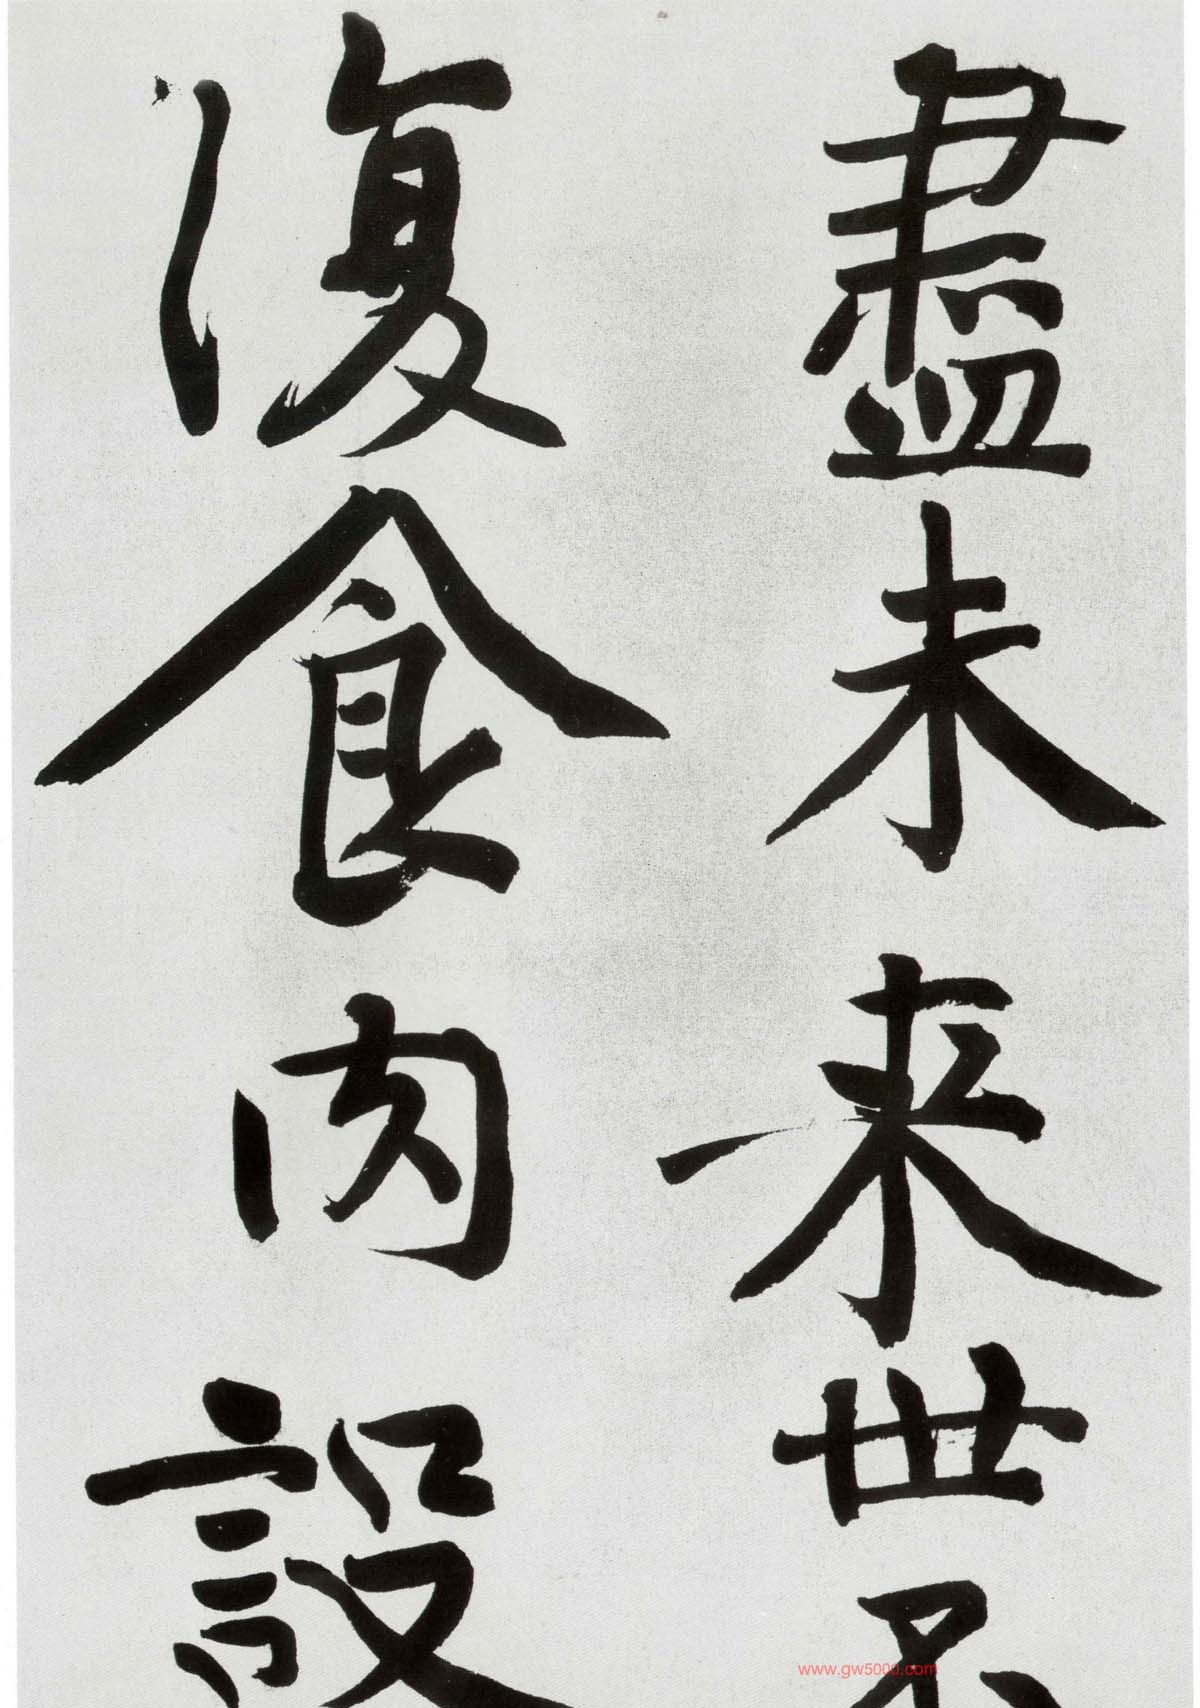 盡未来世不
復食肉設
www.gw5000.com